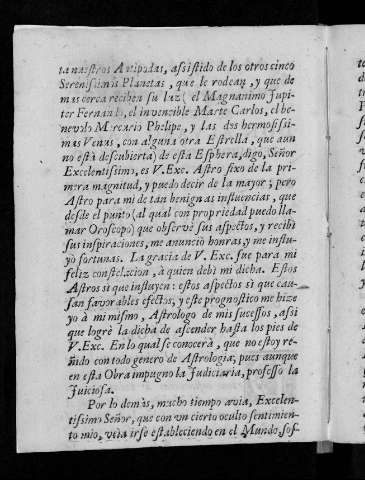 ta nuestros Antipodas, assistido de los otros cinco
Serenissimos Planetas, que le rodean, y que de
mas cerca reciben su luz (el Magnanimo Jupi-
ter Fernando, el invencible Marte Carlos, el be-
nevolo Mercurio Phelipe, y las dos hermosissi-
mas Venus, con alguna otra Estrella, que aun
no està descubierta) de esta Esphera, digo, Señor
Excelentissimo, es V. Exc. Astro fixo de la pri-
mera magnitud, y puedo decir de la mayor; pero
Astro para mi de tan benignas influencias, que
desde el punto (al qual con propriedad puedo lla-
mar Oroscopo) que observè sus aspectos, y recibì
sus inspiraciones, me anunciò honras, y me influ-
yò fortunas. La gracia de V. Exc. fue para mi
feliz constelacion, à quien debì mi dicha. Estos
Astros si que influyen: estos aspectos si que cau-
san favorables efectos, y este prognostico me hize
yo à mi mismo, Astrologo de mis sucessos, assi
que logrè la dicha de ascender hasta los pies de
V. Exc. En lo qual se conocerà, que no estoy re-
ñido con todo genero de Astrologia, pues aunque
en esta Obra impugno la Judiciaria, professo la
Juiciosa.
Por lo demàs, mucho tiempo avia, Excelen-
tissimo Señor, que con un cierto oculto sentimien-
to mio, veia irse estableciendo en el Mundo, sos-